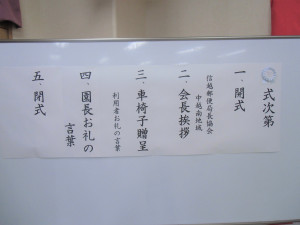 式次第
一．開式
信越郵便局長協会
中越南地域
二．会長挨拶
三．車椅子贈呈
利用者お礼の言葉
四．園長お礼の
言葉
五．閉式